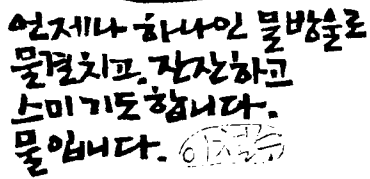 언제나 하나인 물방울로
물결치고. 잔잔하고
스미기도 합니다.
물입니다.